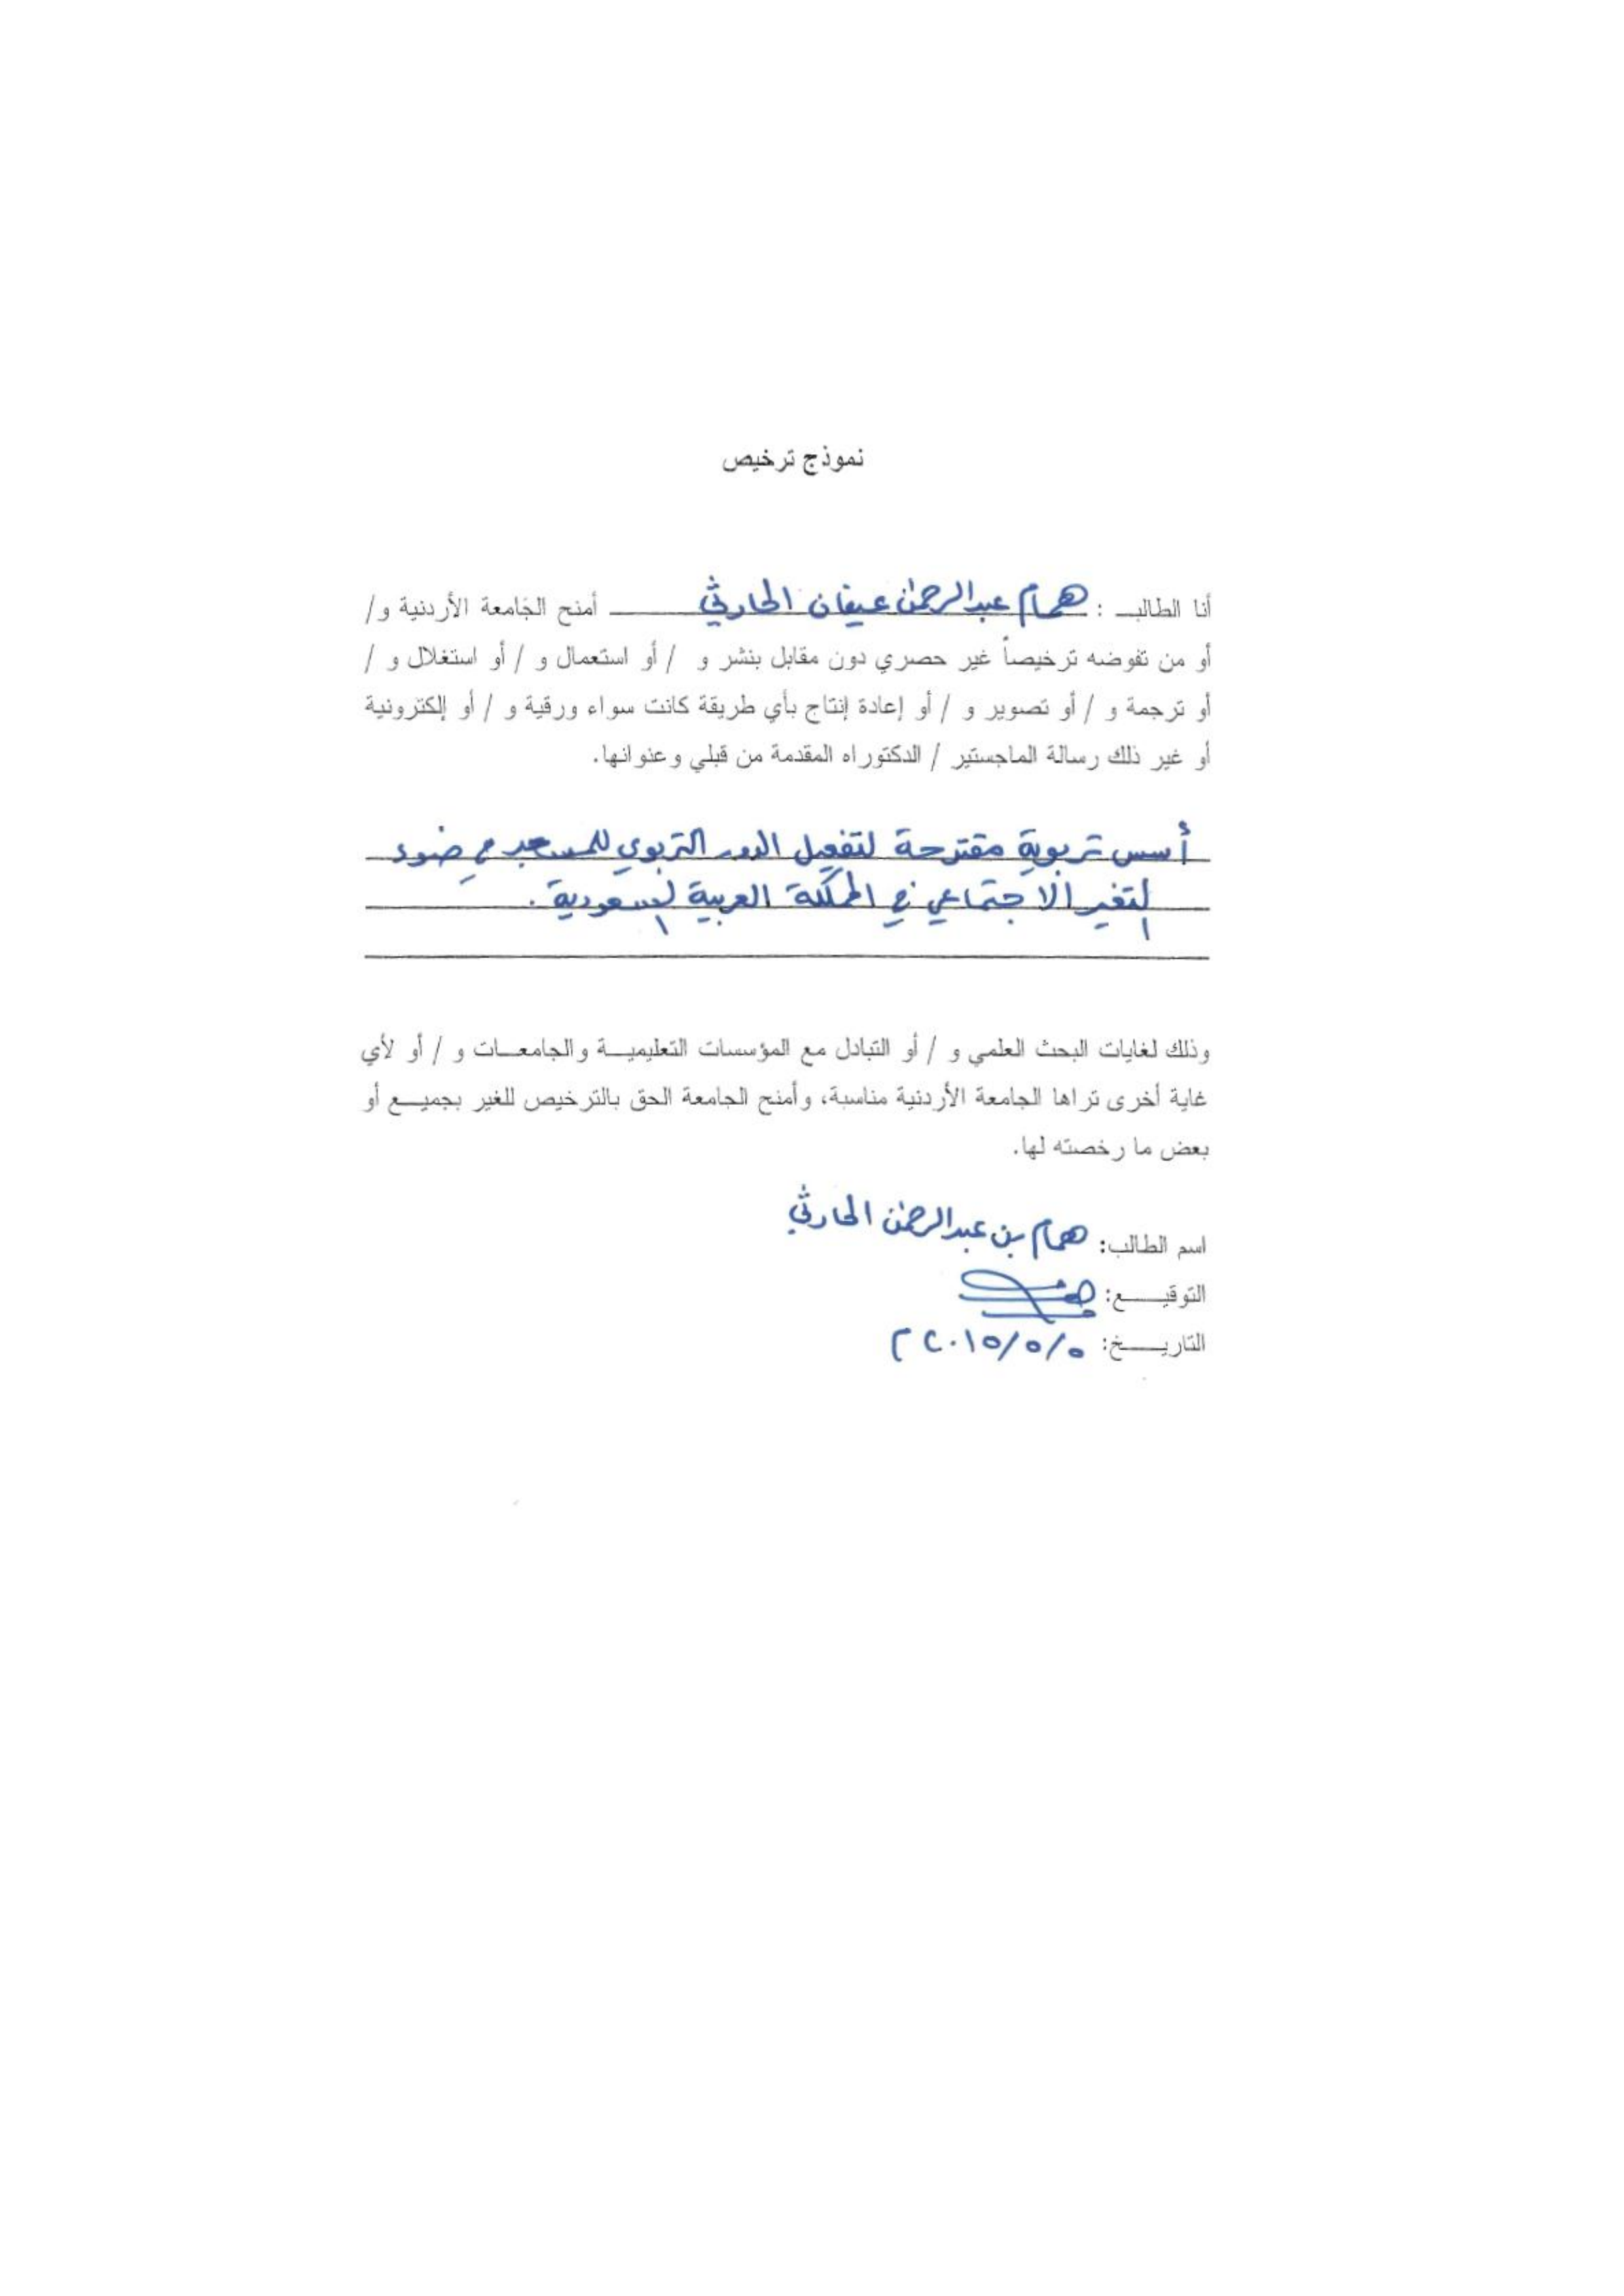 نموذج ترخيص
أنا الطالب : همام عبدالرحمن عيفان الحارثي أمنح الجامعة الأردنية و/
أو من تفوضه ترخيصاً غير حصري دون مقابل بنشر و / أو استعمال و / أو استغلال و /
أو ترجمة و / أو تصوير و / أو إعادة إنتاج بأي طريقة كانت سواء ورقية و / أو إلكترونية
أو غير ذلك رسالة الماجستير / الدكتوراه المقدمة من قبلي وعنوانها.
أسس تربوية مقترحة لتفعيل الدور التربوي للمسجد في ضوء
التغير الاجتماعي في المملكة العربية السعودية .
وذلك لغايات البحث العلمي و / أو التبادل مع المؤسسات التعليمية والجامعات و / أو لأي
غاية أخرى تراها الجامعة الأردنية مناسبة، وأمنح الجامعة الحق بالترخيص للغير بجميع أو
بعض ما رخصته لها.
اسم الطالب: همام بن عبدالرحمن الحارثي
التوقيع:
التاريخ: ٥/٥/٢٠١٥ م